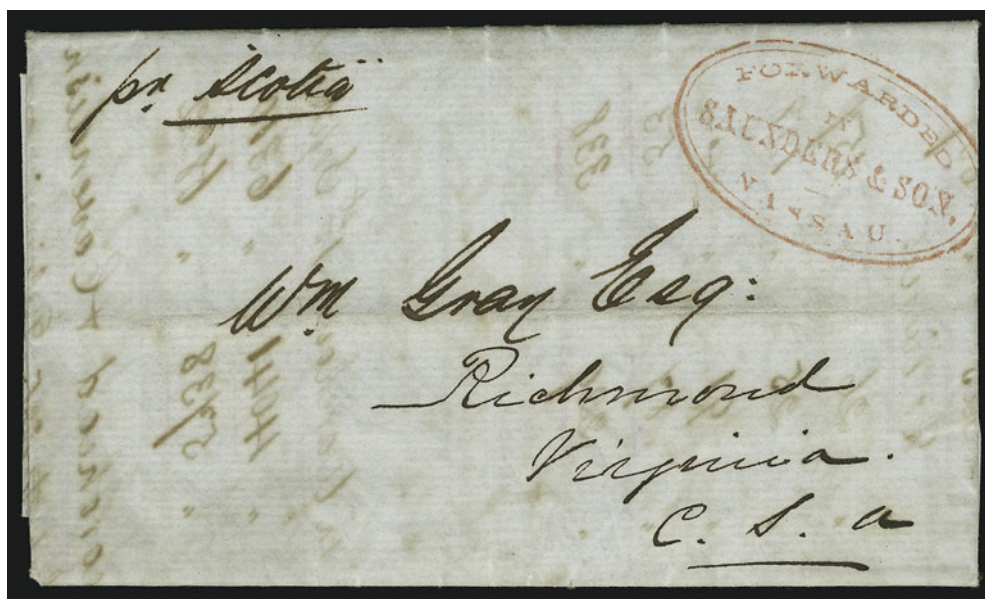 pr Scotia
FORWARDED
BY
SAUNDERS & SON,
NASSAU.
Wm Gray Esq:
Richmond
Virginia.
C. S. a